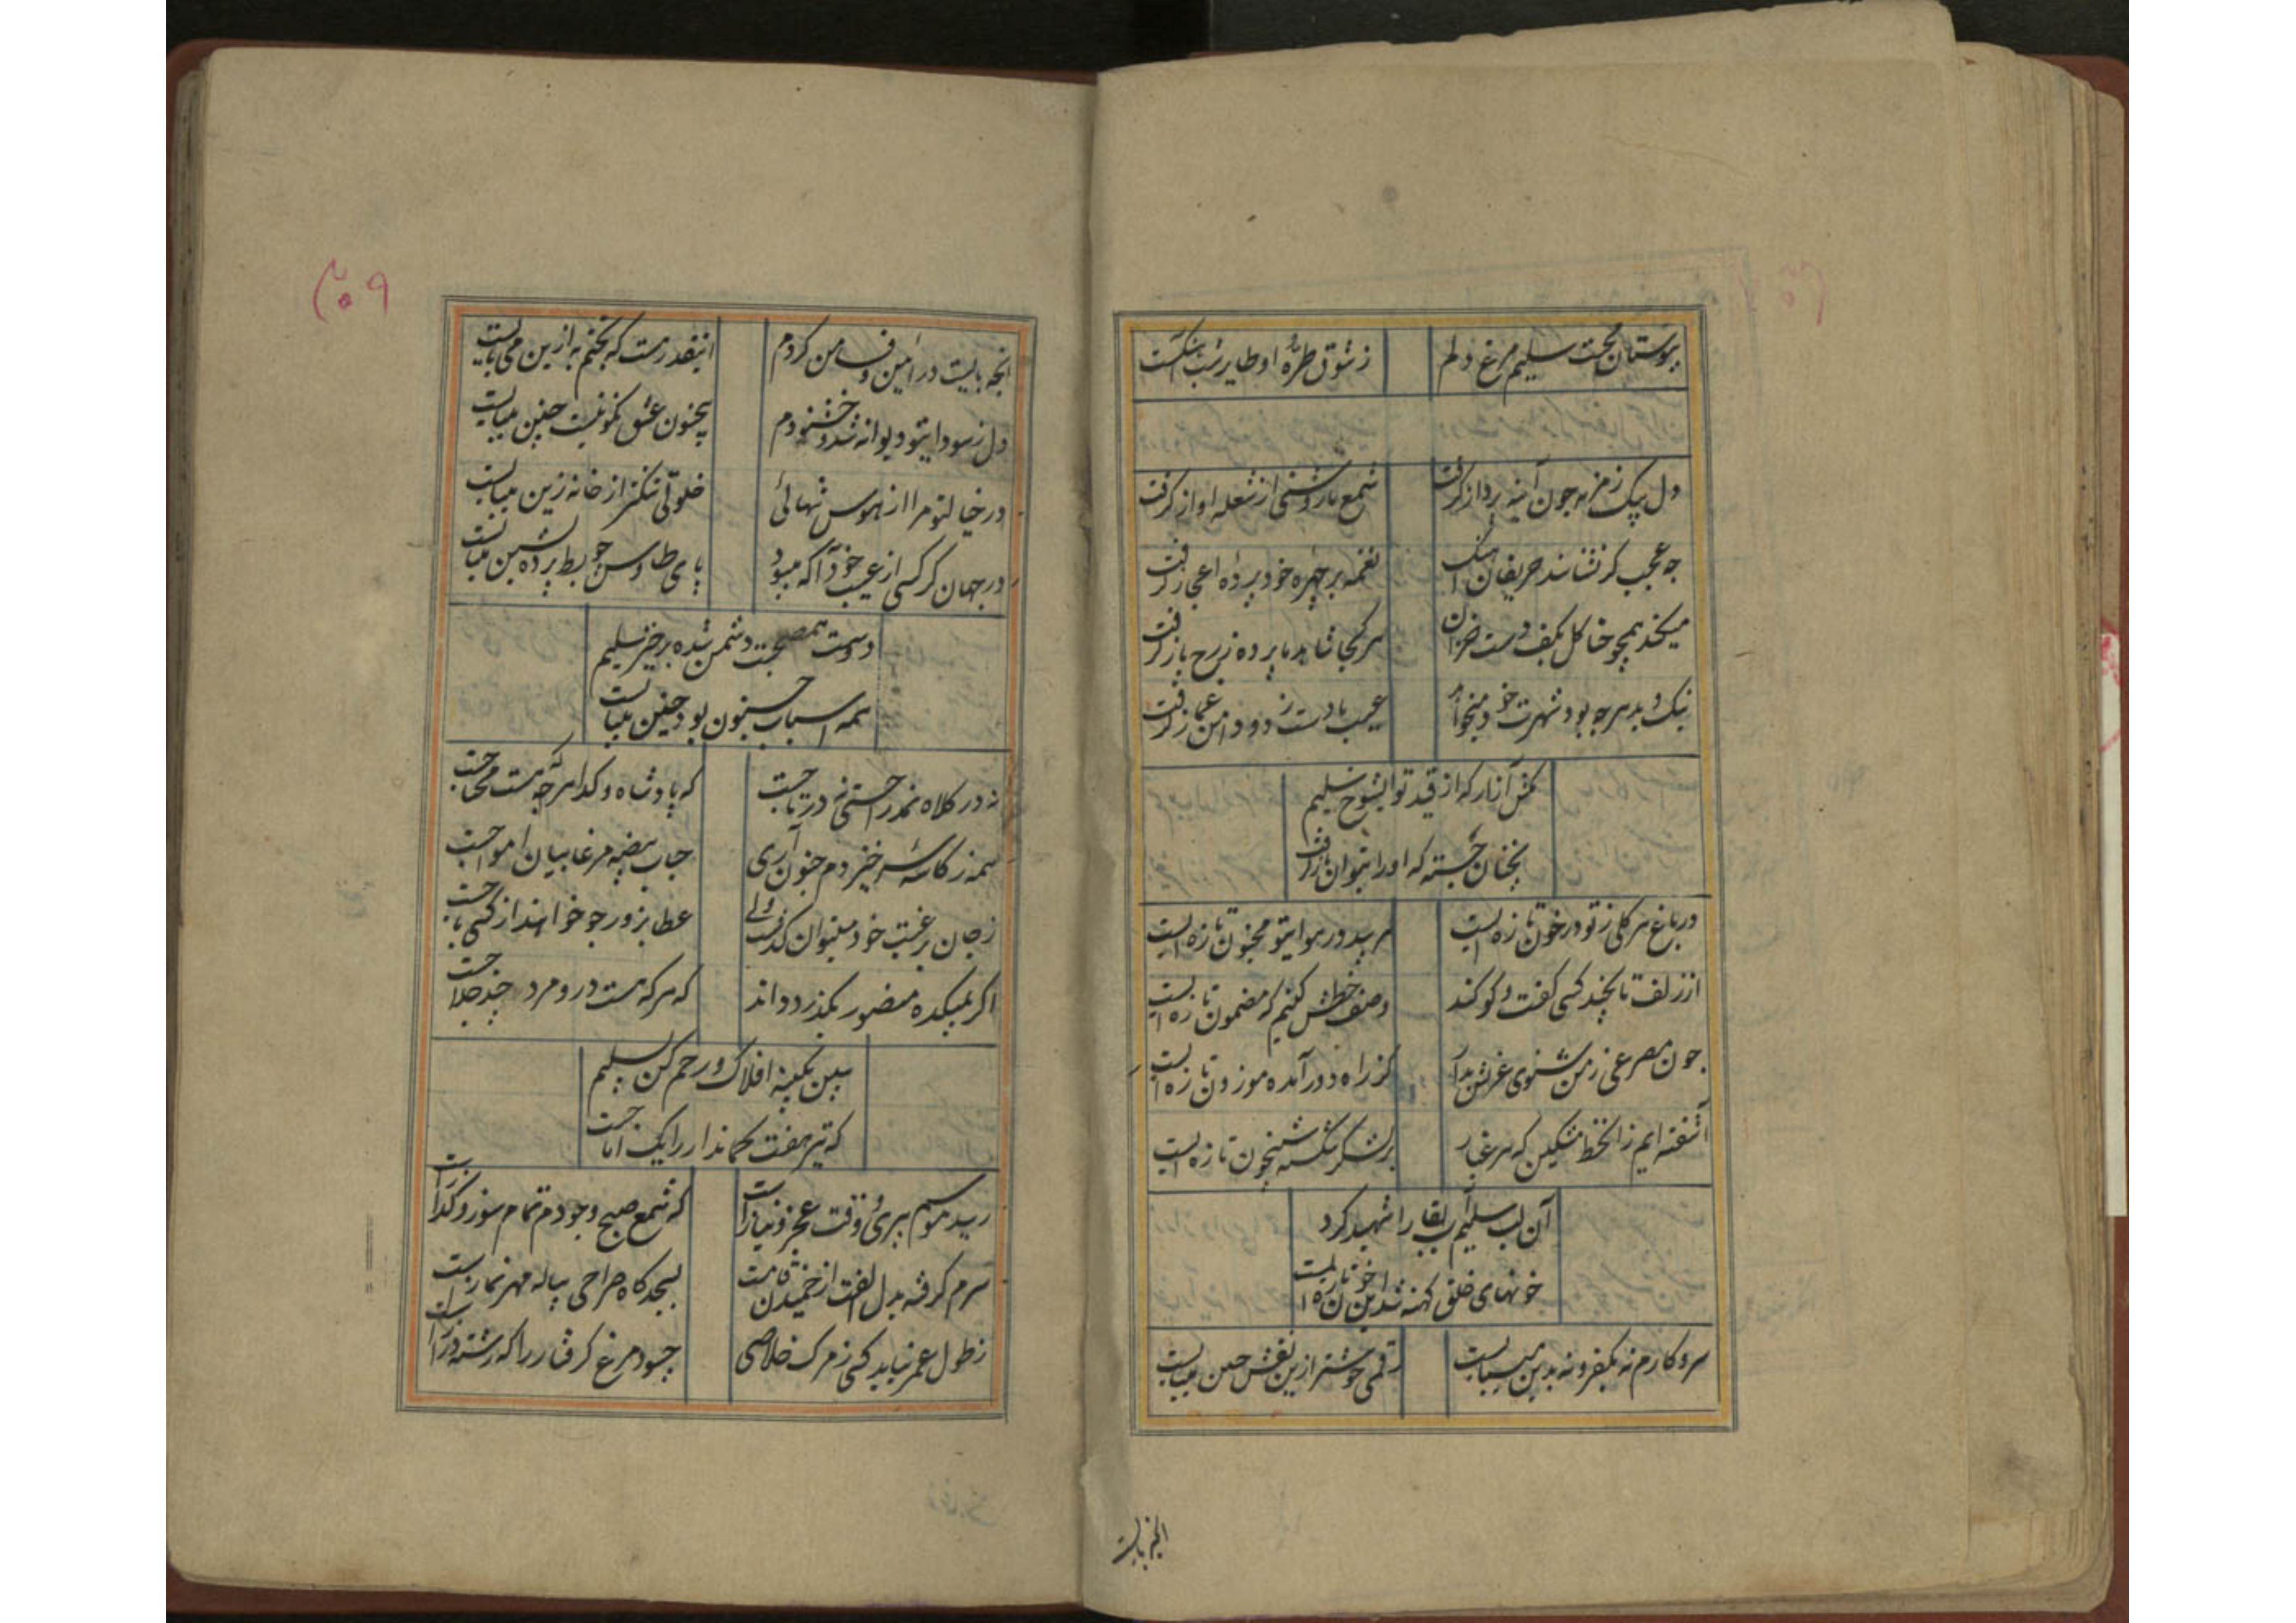 ببوستان محبت سلیم مرغ دلم
ز شوق طرّهٔ او طایر شب آهنگست
دل بیک زمزمه چون آینه پرداز گرفت
شمع ما روشنی از شعله آواز گرفت
چه عجب گر نشناسند حریفان آهنگ
نغمه بر چهره خود پردهٔ اعجاز گرفت
میکند همچو حنا گل بکف دست خزان
هر کجا شاهد ما پرده ز رخ باز گرفت
نیک و بد هر چه بود شهرت خود میخواهد
عیب ما دست زد و دامن غماز گرفت
مکش آنرا که از قید تو ایشوخ سلیم
نچنان جسته که او را بتوان باز گرفت
در باغ هر گلی ز تو در خون تازه ایست
هر بید در هوای تو مجنون تازه ایست
از زلف تا بچند کسی گفت و گو کند
وصف خطش کنیم که مضمون تازه ایست
چون مصرعی ز من شنوی عزتش بدار
کز راه دور آمده موزون تازه ایست
آشفته ایم زان خط مشکین که هر غبار
بر لشکر شکسته شبیخون تازه ایست
آن لب سلیم بقا را شهید کرد
خونهای خلق کهنه شد این خون تازه ایست
سر و کارم نه بکفر و نه بدین میبایست
رقمی خوشتر ازین نقش جبین میبایست
انچه بایست
۲۵۹
انچه بایست در آمین وفا من کردم
اینقدر هست که بختم به ازین می بایست
دل ز سودای تو دیوانه شد و خشنودم
بجنون عشق نکو نیست چنین میبایست
در خیال تو مرا از هوس تنهائی
خلوتی تنگتر از خانه زین میبایست
در جهان گر کسی از عیب خود آگه میبود
پای طاوس چو بط پرده نشین میبایست
دوست هم صحبت دشمن شده برخیز سلیم
همه اسباب جنون بود چنین میبایست
نه در کلاه نمد راحتی نه در تاجست
که پادشاه و گدا هر که هست محتاجست
همه ز کاسهٔ سر خیزدم جنون آری
حباب بیضه مرغابیان امواجست
ز جان برغبت خود میتوان گذشت ولی
عطا بزور چو خواهند از کسی باجست
اگر بمیکده منصور بگذرد داند
که هر که هست درو مرد چند حلاجست
ببین بکینه افلاک و رحم کن بسلیم
که تیر هفت کماندار را یک آماجست
رسید موسم پیری و وقت عجز و نیاز است
که شمع صبح وجودم تمام سوز و گداز است
سرم گرفته بدل الفت از خمیدن قامت
بسجده گاه صراحی پیاله مهر نماز است
ز طول عمر نیابد کسی ز مرگ خلاصی
چه سود مرغ گرفتار را که رشته دراز است